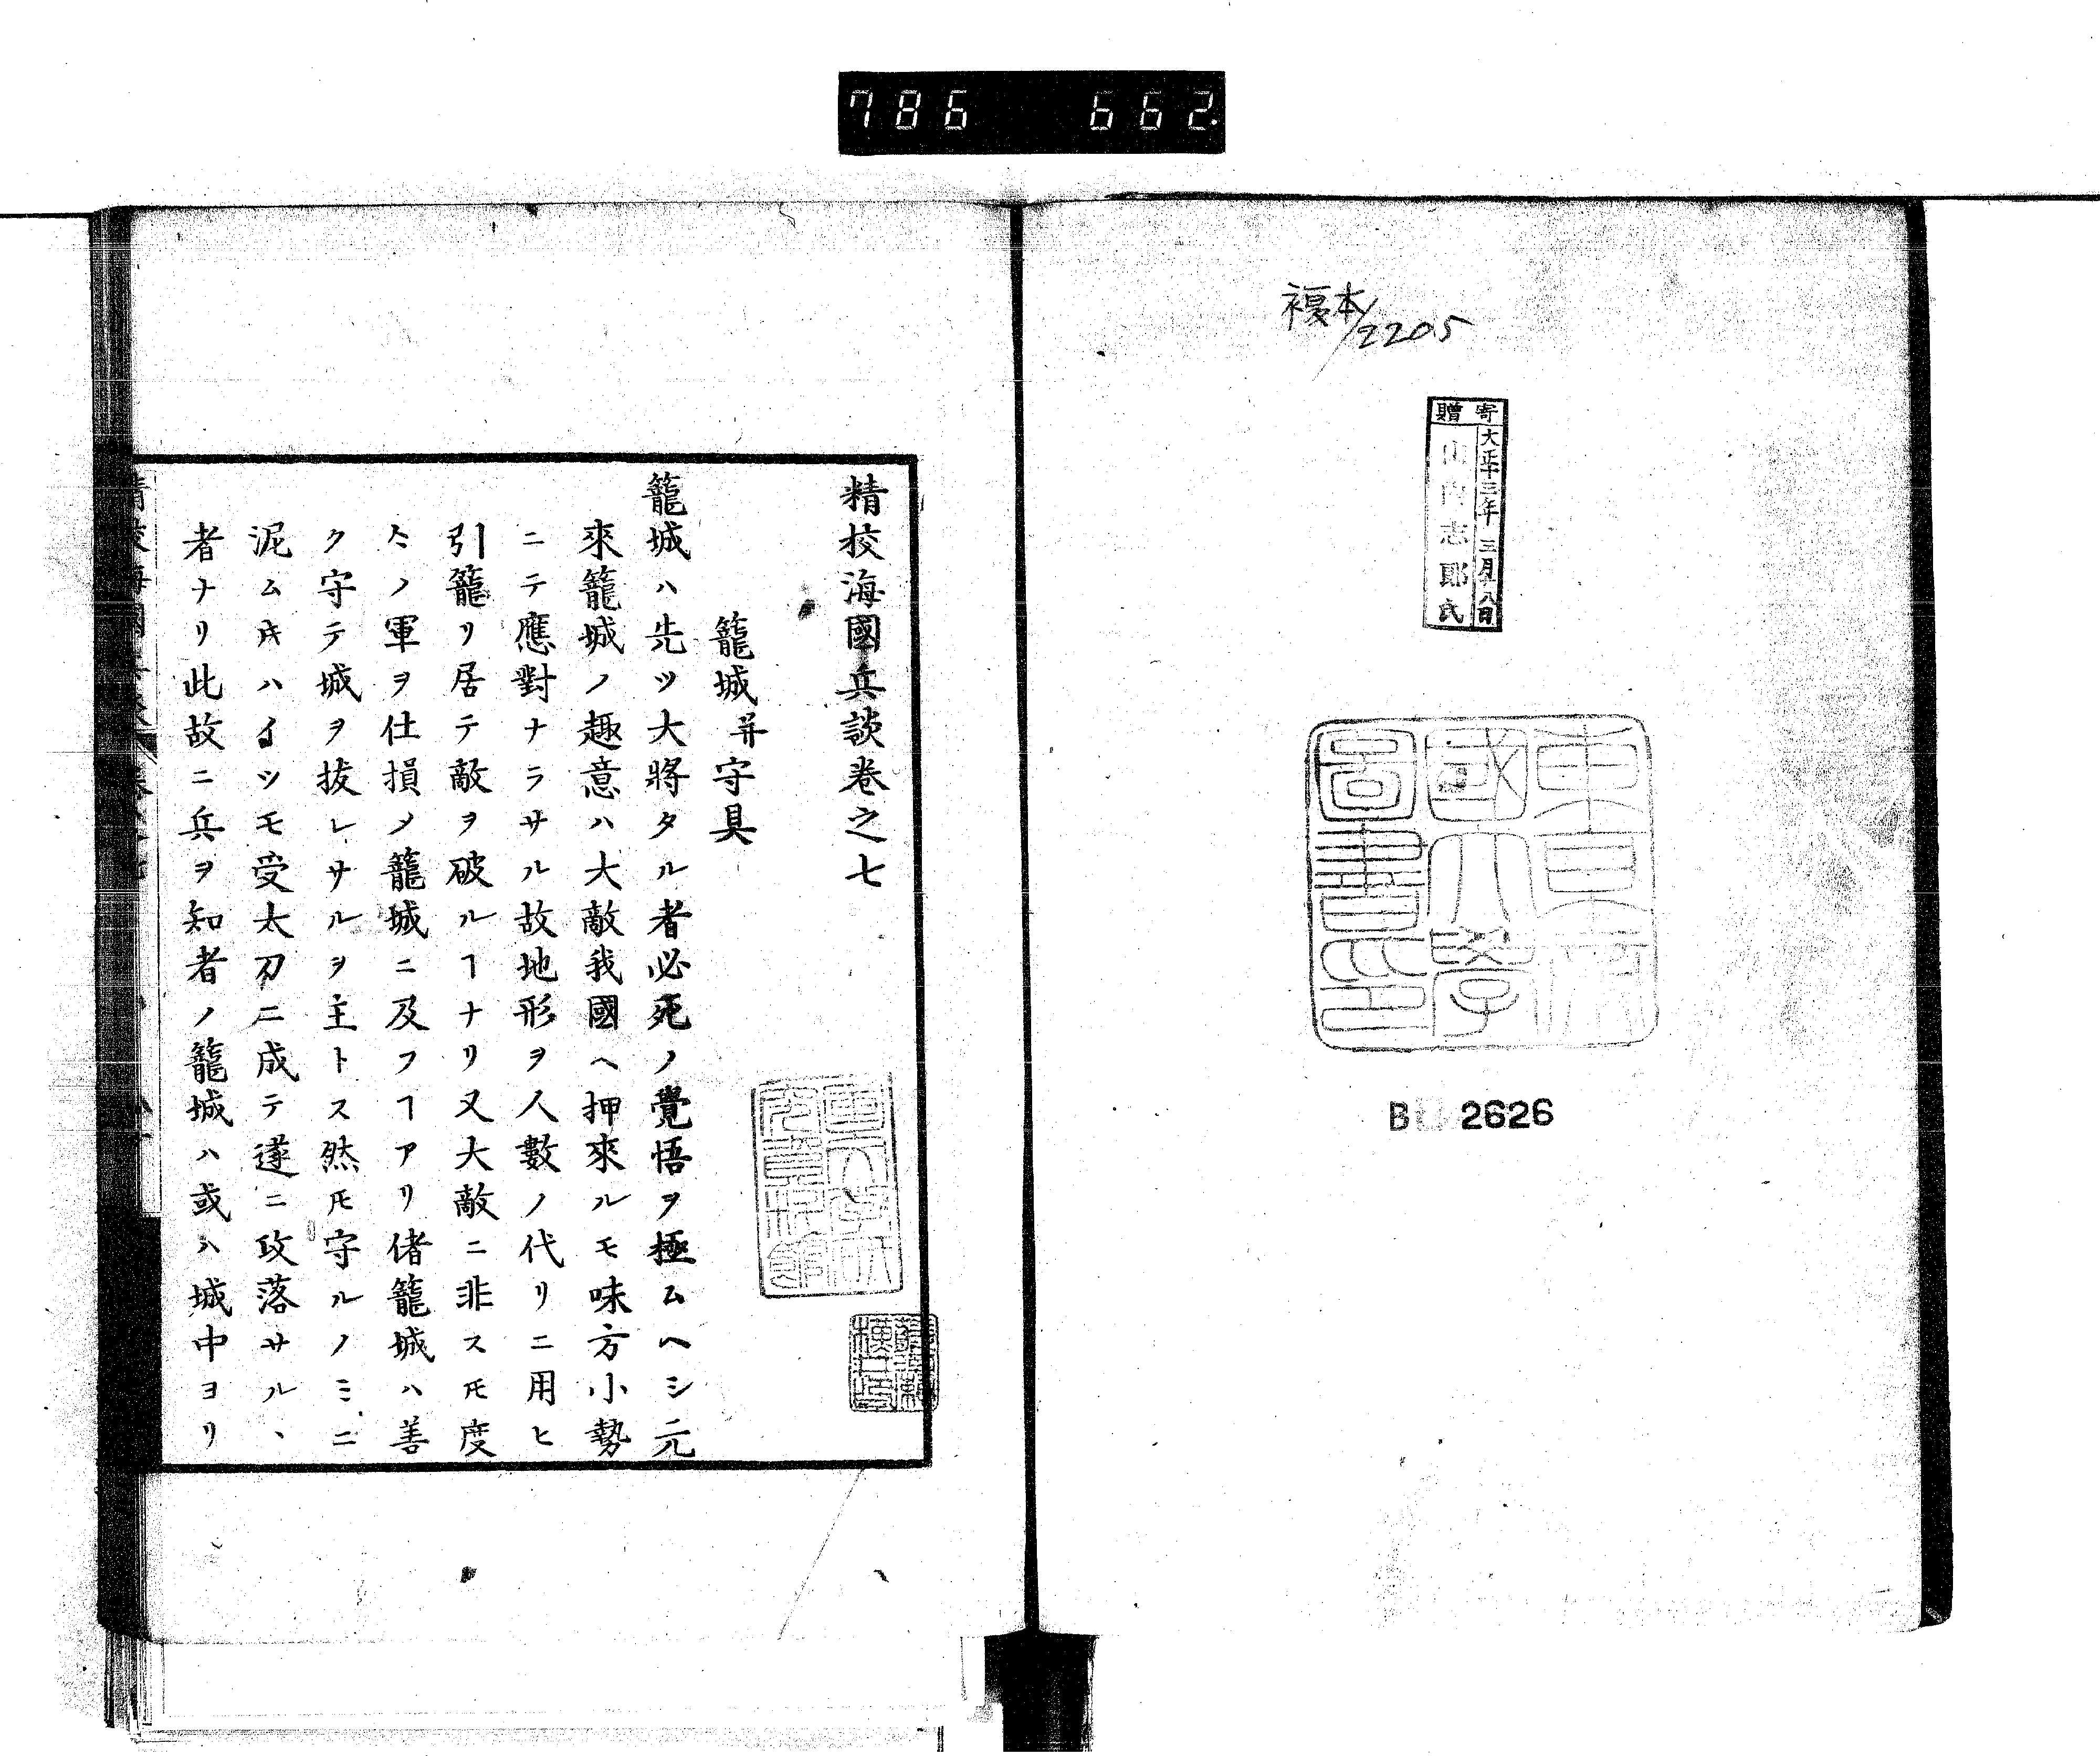 786 662
複本/2205
寄贈
大正十三年三月十八日
山内志郎氏
東京帝
國大學
圖書印
B 2626
精校海國兵談卷之七
籠城并守具
籠城ハ先ツ大將タル者必死ノ覺悟ヲ極ムヘシ元
來籠城ノ趣意ハ大敵我國ヘ押來ルモ味方小勢
ニテ應對ナラサル故地形ヲ人數ノ代リニ用ヒ
引籠リ居テ敵ヲ破ルヿナリ又大敵ニ非スㇳモ度
々ノ軍ヲ仕損メ籠城ニ及フヿアリ偖籠城ハ善
ク守テ城ヲ拔レサルヲ主トス然𪜈守ルノミニ
泥ムキハイツモ受太刀ニ成テ遂ニ攻落サルヽ
者ナリ此故ニ兵ヲ知者ノ籠城ハ或ハ城中ヨリ